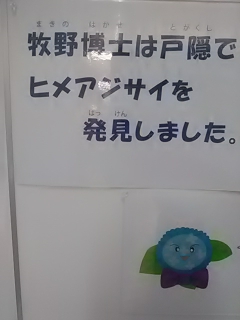 まきの はかせ とがくし
牧野博士は戸隠で
ヒメアジサイを
はっけん
発見しました。